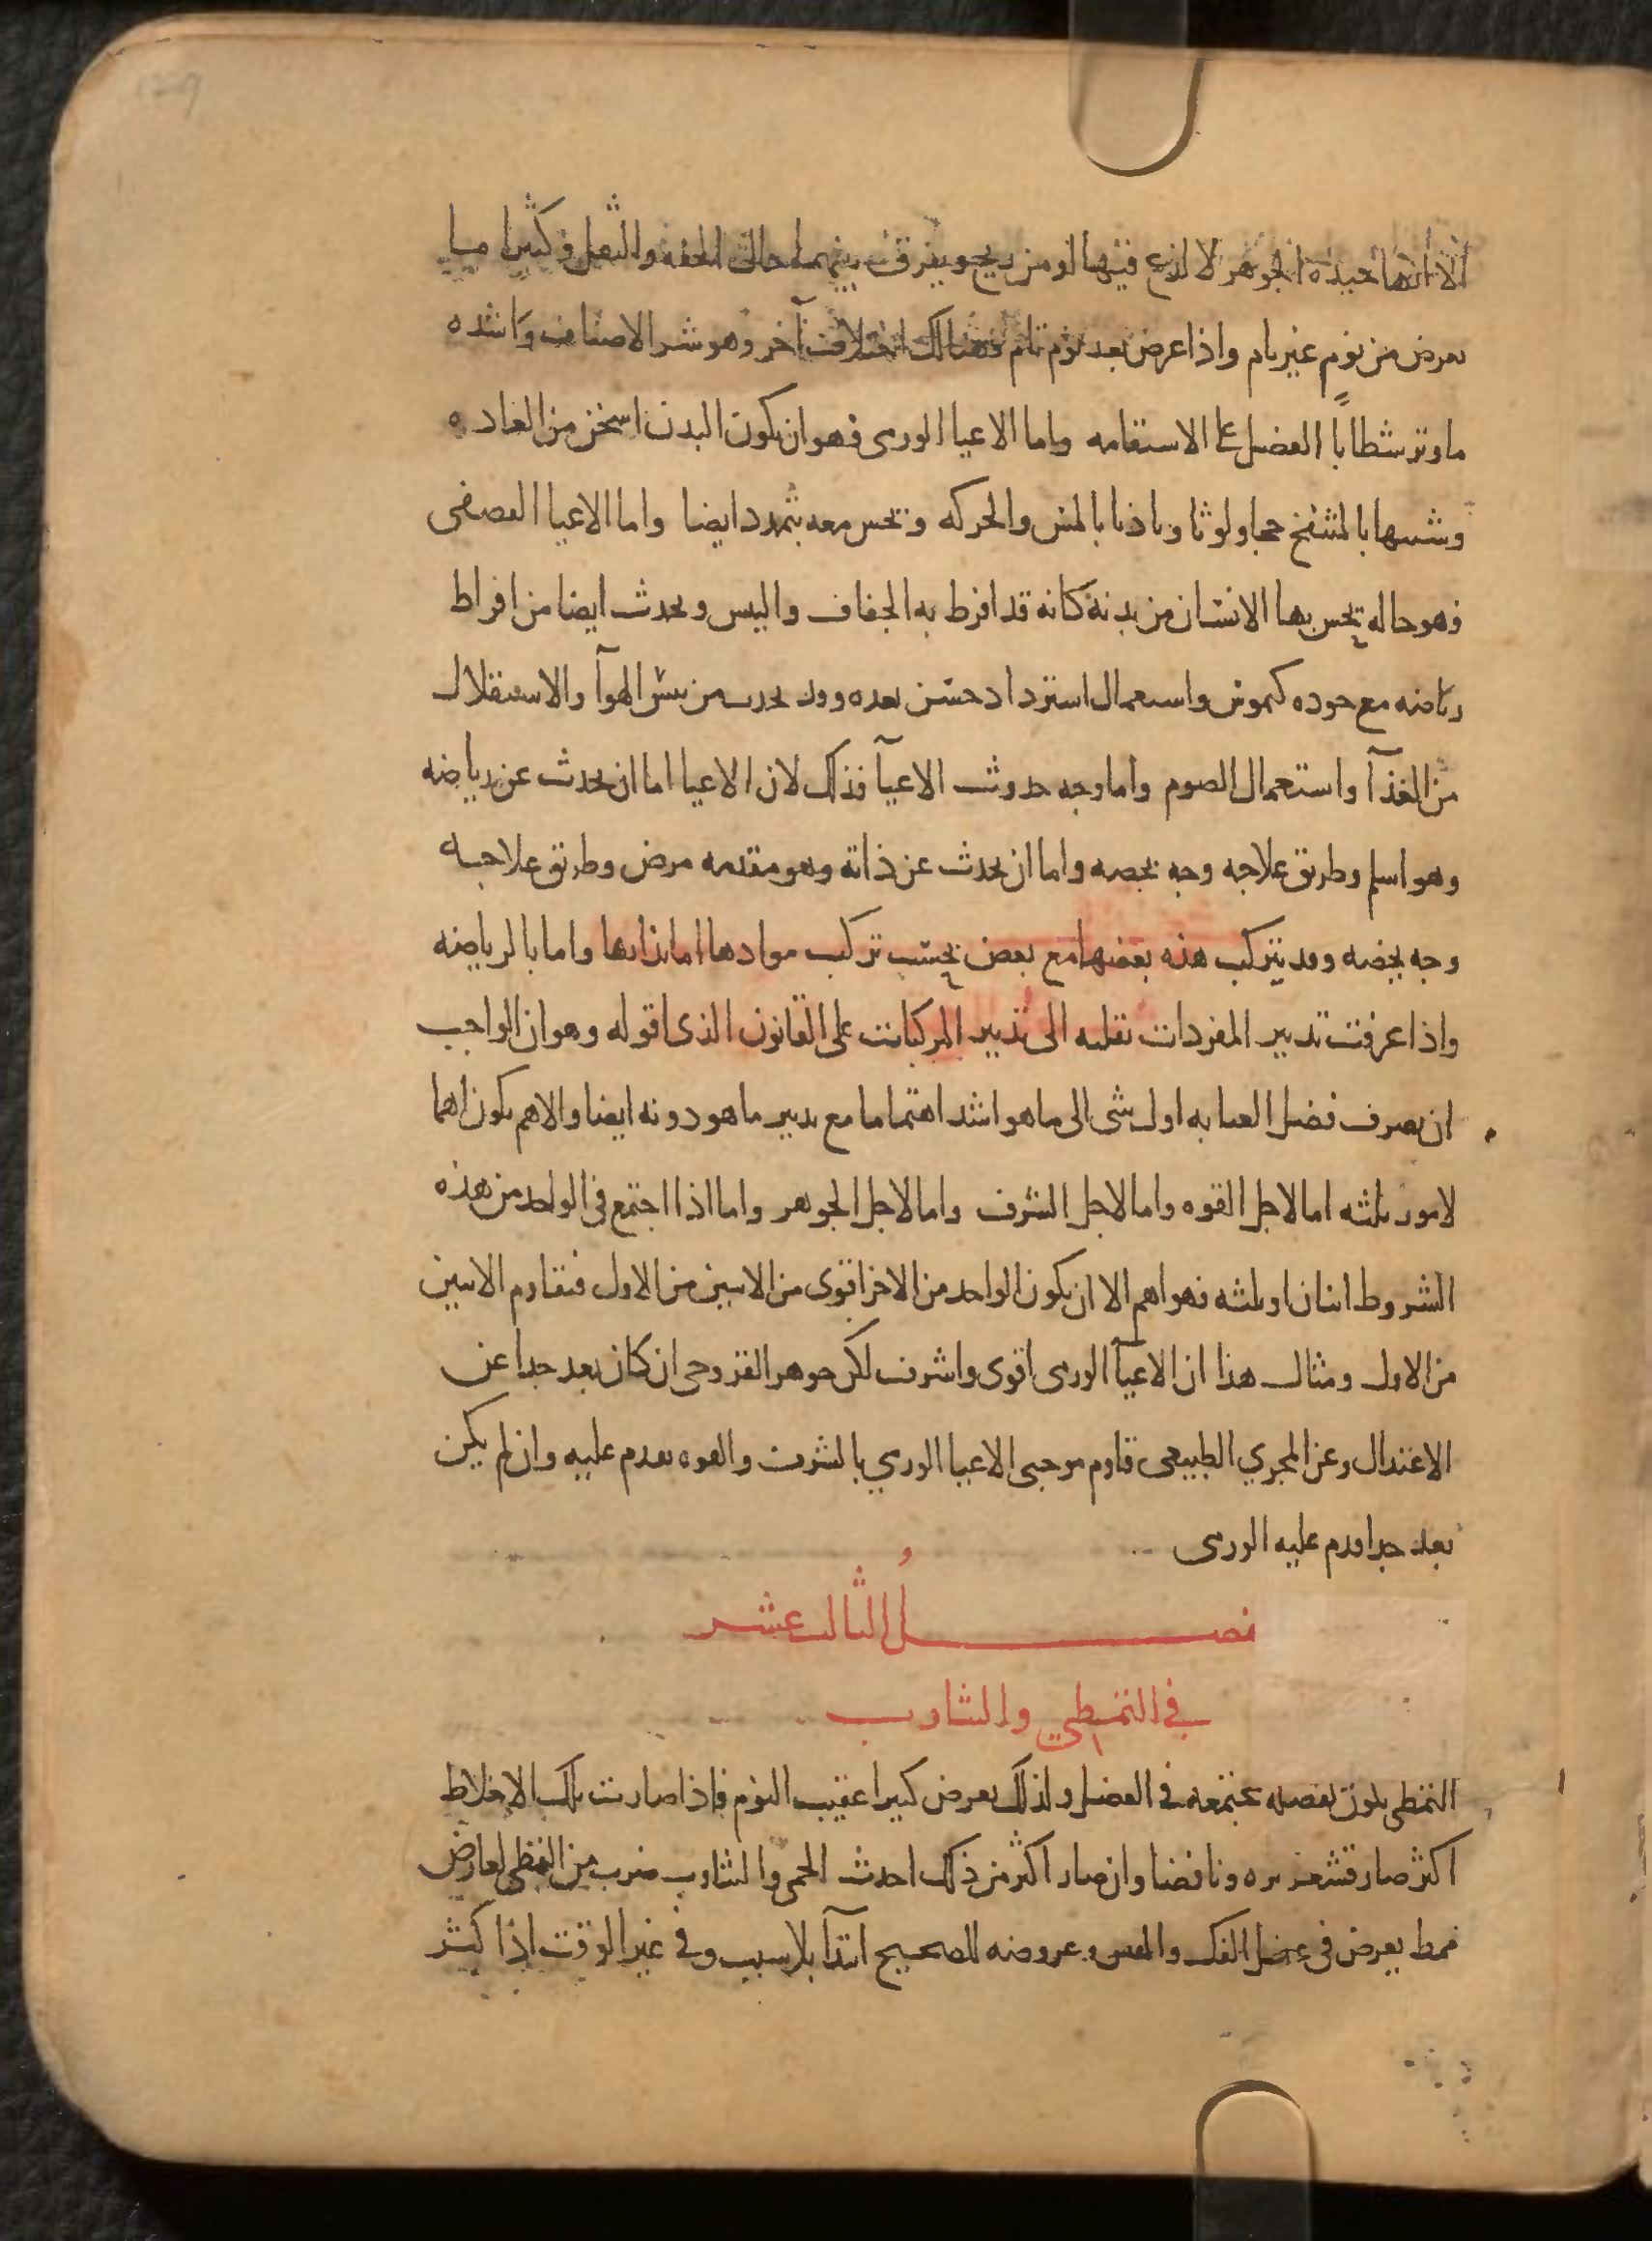 الا انها جيده الجوهر لا لذع فيها او من ريح ويفرق بينهما حالتى الخفه والثقل وكثيرا ما
يعرض من نوم غير تام واذا عرض بعد نوم تام فهنالك اختلاف آخر وهو شر الاصناف واشده
ما وتر شطايا العضل على الاستقامه واما الاعيا الورمى فهو ان يكون البدن اسخن من العاده
وشبيها بالمنتفخ حجما ولونا وتاذيا بالمس والحركه ويحس معه بتمدد ايضا واما الاعيا القصفى
فهو حاله يحس بها الانسان من بدنه كانه قد افرط به الجفاف واليبس ويحدث ايضا من افراط
رياضه مع جوده كيموس واستعمال استرداد خشن بعده وقد يحدث من يبس الهوآ والاستقلال
من الغذآ واستعمال الصوم واما وجه حدوث الاعيآ فذلك لان الاعيا اما ان يحدث عن رياضه
وهو اسلم وطريق علاجه وجه يخصه واما ان يحدث عن ذاته وهو مقدمه مرض وطريق علاجه
وجه يخصه وقد يتركب هذه بعضها مع بعض بحسب تركب موادها اما بذاتها واما بالرياضه
واذا عرفت تدبير المفردات نقلته الى تدبير المركبات على القانون الذى اقوله وهو ان الواجب
ان يصرف فضل العنايه اول شى الى ما هو اشد اهتماما مع تدبير ما هو دونه ايضا والاهم يكون اهما
لامور ثلثه اما لاجل القوه واما لاجل الشرف واما لاجل الجوهر واما اذا اجتمع فى الواحد من هذه
الشروط اثنان او ثلثه فهو اهم الا ان يكون الواحد من الاخر اقوى من الاثنين من الاول فيقاوم الاثنين
من الاول ومثال هذا ان الاعيآ الورمى اقوى واشرف لكن جوهر القروحى ان كان بعد جدا عن
الاعتدال وعن المجري الطبيعى قاوم موجبى الاعيا الورمي بالشرف والقوه فقدم عليه وان لم يكن
بعد جدا قدم عليه الورمى
فصل الثالث عشر
فى التمطي والتثاوب
التمطى يكون لفضله مجتمعه فى العضل ولذلك يعرض كثيرا عقيب النوم فاذا صارت تلك الاخلاط
اكثر صار قشعريره ونافضا وان صار اكثر من ذلك احدث الحمى والتثاوب ضرب من التمطى لعارض
تمط يعرض فى عضل الفك والقص وعروضه للصحيح ابتدآ بلا سبب وفى غير الوقت اذا كثر